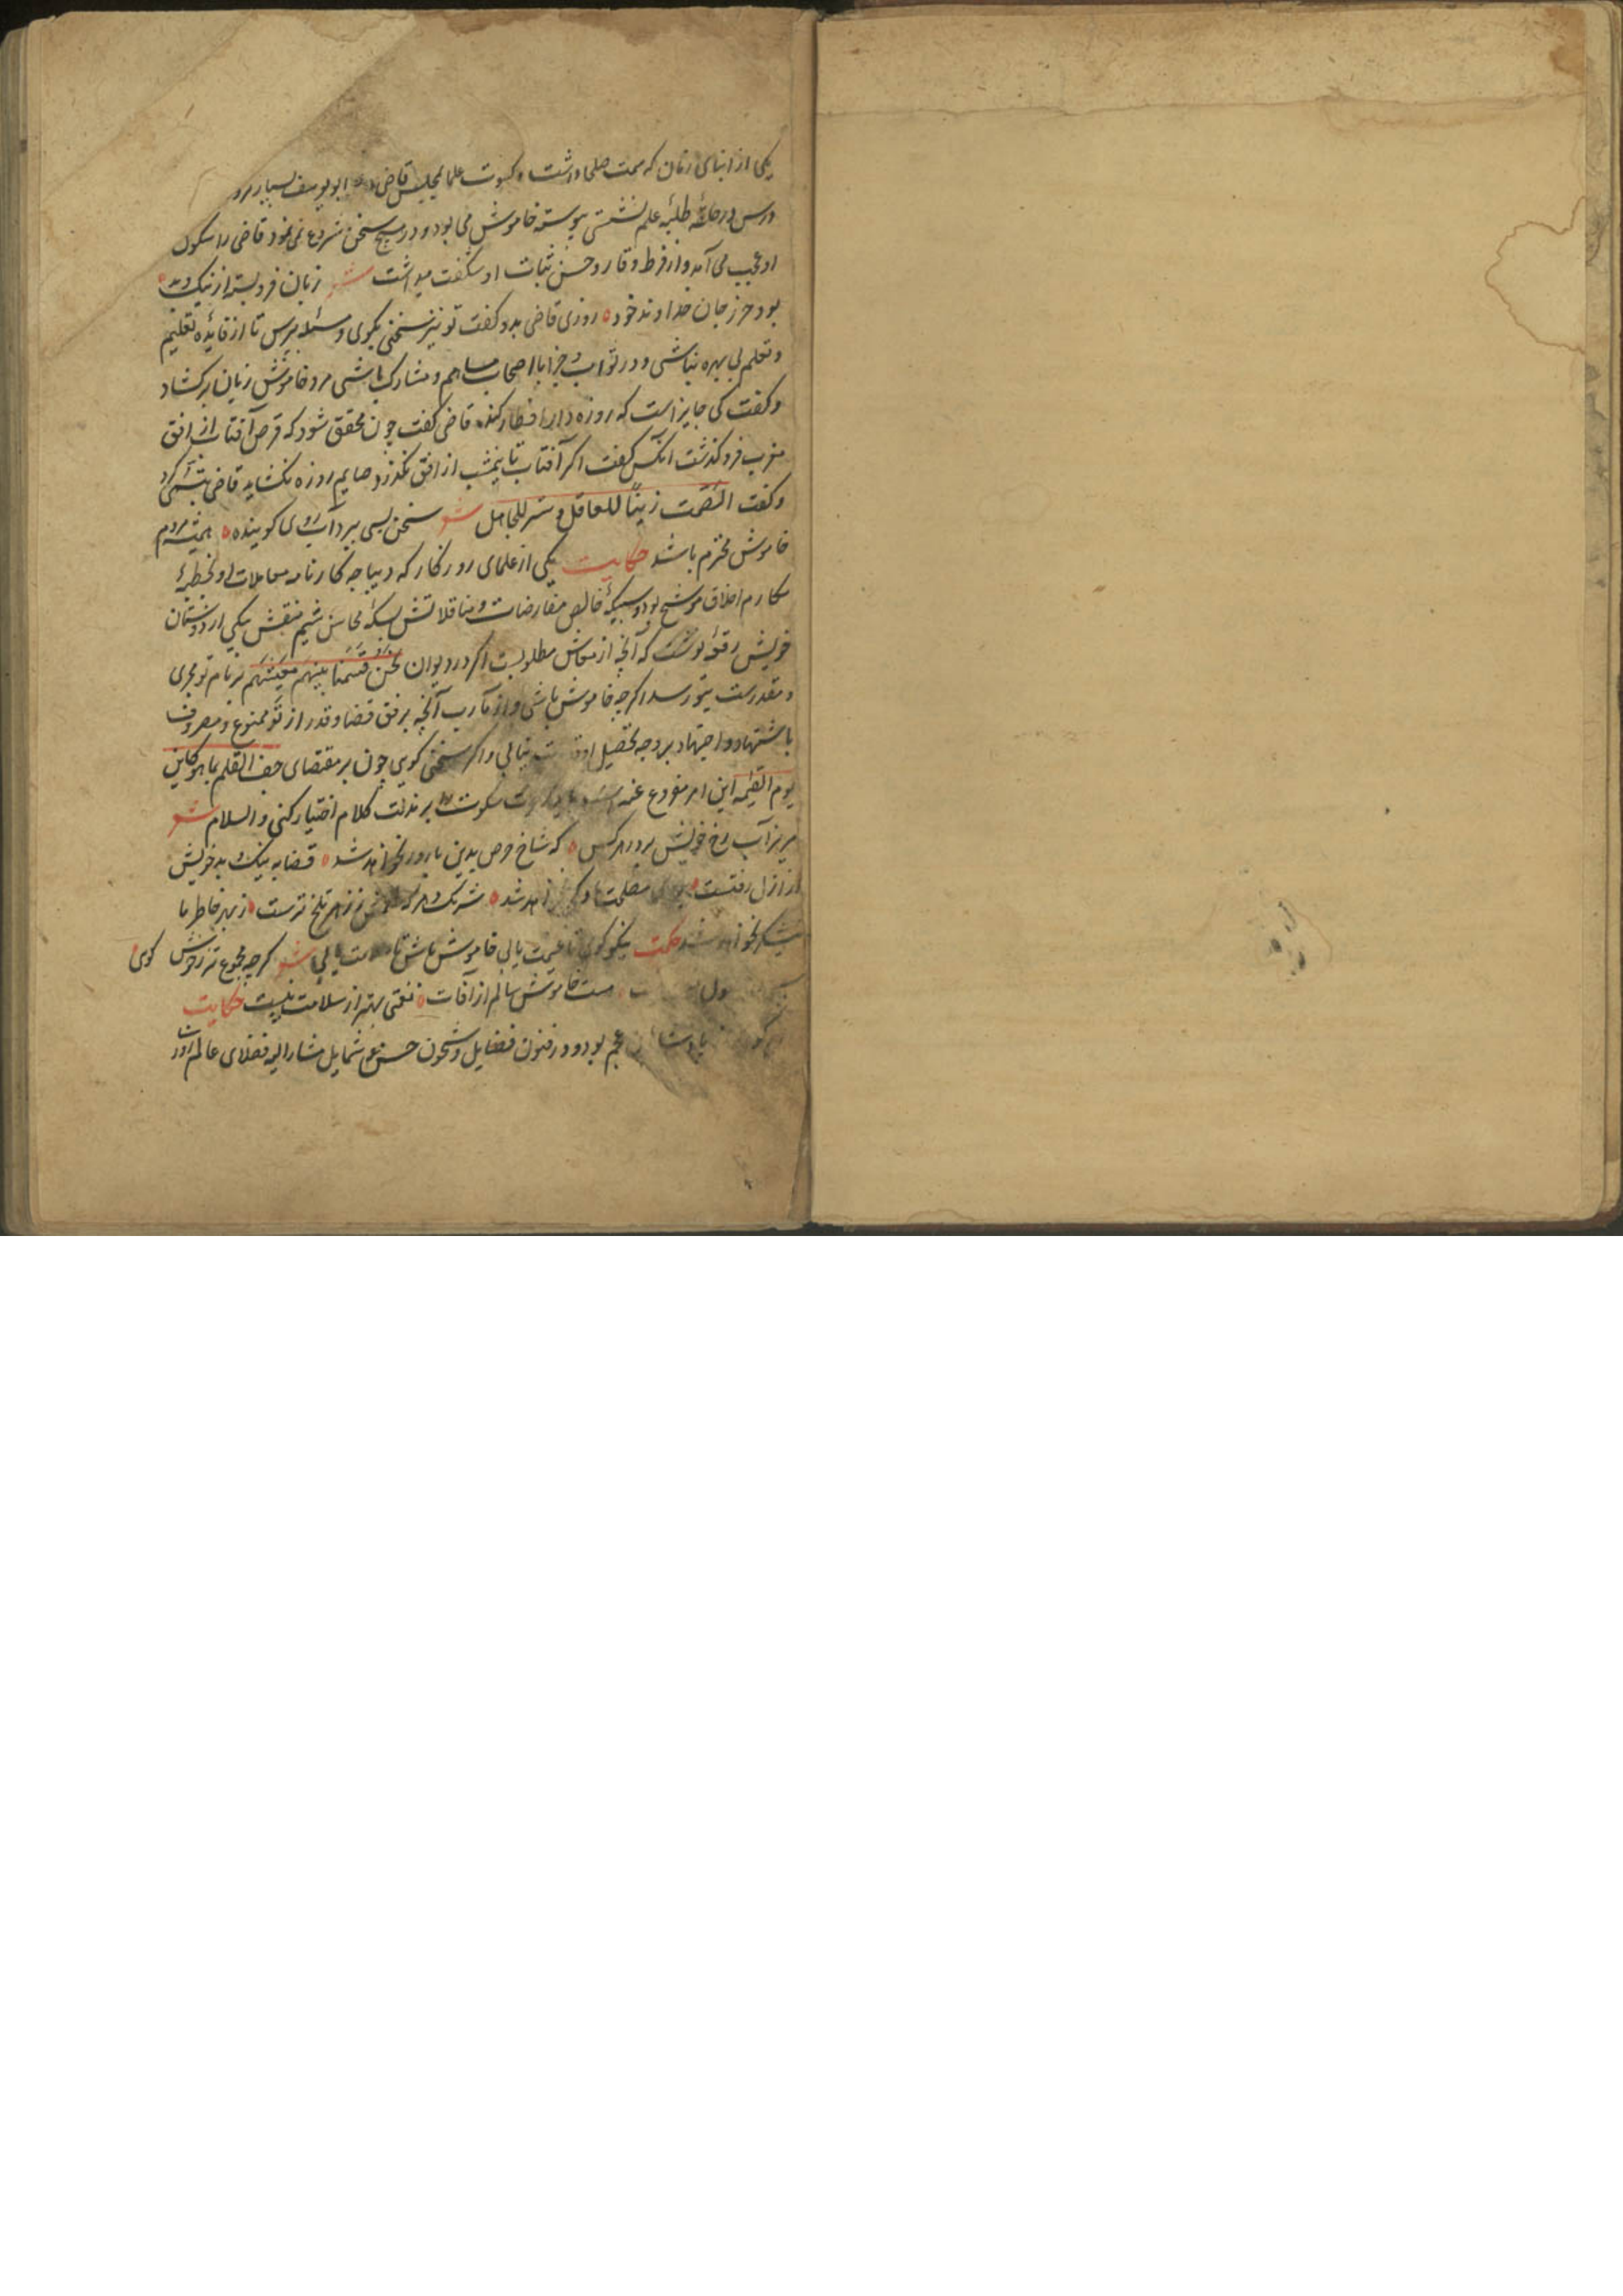 یکی از ابنای زمان که سمت صلحا داشت و کسوت علما بمجلس قاضی ابو یوسف بسیار
درس در حلقهٔ طلبهٔ علم نشستی پیوسته خاموش می بود و در هیچ سخن شروع نمی نمود قاضی را سکون
او عجب می آمد و از فرط وقار و حسن ثبات او شگفت میداشت شعر زبان فرو بسته از نیک و بد
بود حرز جان خداوند خود روزی قاضی بدو کفت تو نیز سخنی بکوی و مسئله بپرس تا از فایدهٔ تعلیم
و تعلم بی بهره نباشی و در ثواب و جزا با اصحاب مساهم و مشارک باشی مرد خاموش زبان برکشاد
و کفت کی جایز است که روزه دار افطار کند قاضی کفت چون محقق شود که قرص آفتاب از افق
مغرب فرو کذشت انکس کفت اکر آفتاب تا نیمشب از افق نکذرد صایم روزه نکشاید قاضی تبسمی کرد
و کفت الصمت زینًا للعاقل و ستر للجاهل شعر سخن بسی ببرد آب روی کوینده همیشه مردم
خاموش محترم باشد حکایت یکی از علمای روزکار که دیباجه کارنامه معاملات او بخطبهٔ
مکارم اخلاق موشح بود و سبیکهٔ خالص مفاوضات و مناقلاتش بسکهٔ محاسن شیم منقش بیکی از دوستان
خویش رقعه نوشت که آنچه از معاش مطلوبست اکر در دیوان نحن قسمنا بینهم معیشتهم بر نام تو مجری
و مقدرست بتو رسد اکر چه خاموش باشی و از مآرب آنچه برفق قضا و قدر از تو ممنوع و مصروف
باشتهاد و اجتهاد بر وجه تحصیل نیابی و اکر سخنی کویی چون بر مقتضای جف القلم بما هو کاین
یوم القیمه این امر مفروغ عنه سکوت بر مذلت کلام اختیار کنی و السلام شعر
مریز آب رخ خویش بر در هر کس که شاخ حرص بدین بارور نخواهد شد قضا به نیک و بد خویش
از ازل رفتست مصلحت ما دکر نخواهد شد شرنک دهر که زهر تلخ ترست ز بهر خاطر ما
شکر نخواهد شد حکمت نیکو کوی تا غنیمت یابی خاموش باش تا سلامت یابی شعر کرچه مجموع تر ز خوش کوی
ول خاموش سالم از آفات نعمتی بهتر از سلامت نیست حکایت
عجم بود و در فنون فضایل و شجون حسن شمایل مشار الیه فضلای عالم